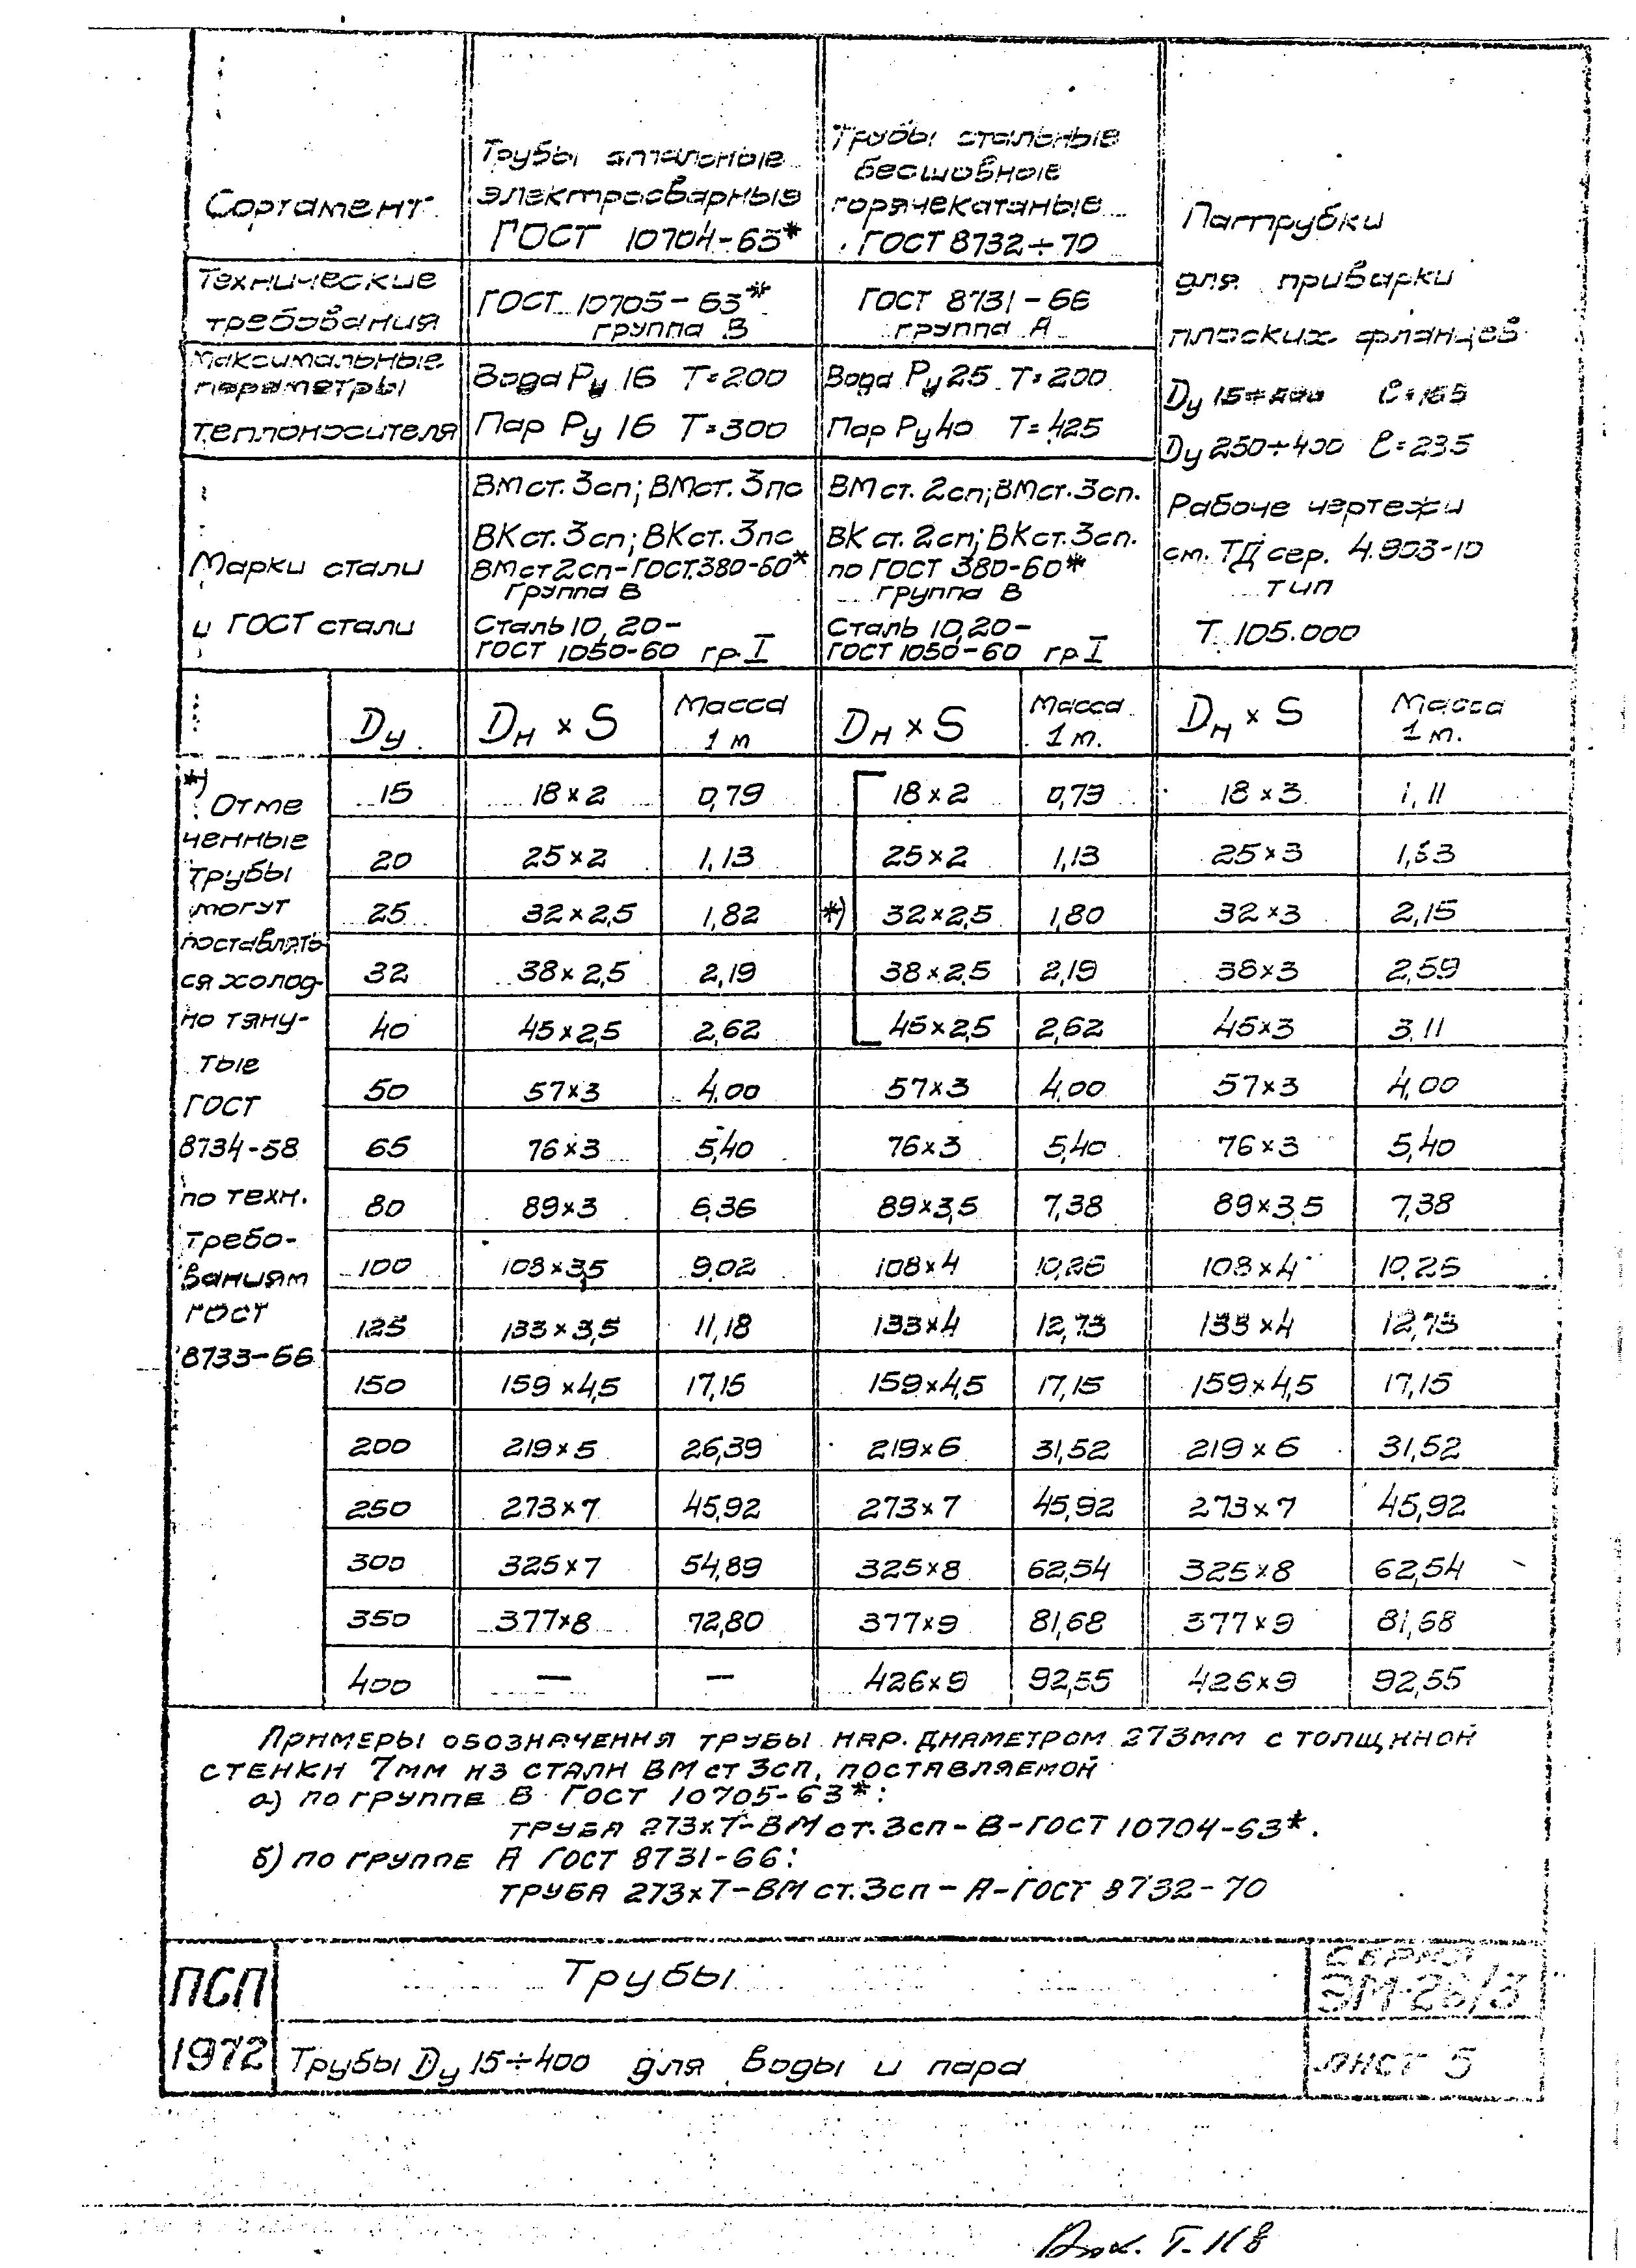 Сортамент
Трубы стальные
электросварные
ГОСТ 10704-63*
Трубы стальные
бесшовные
горячекатаные
ГОСТ 8732÷70
Патрубки
для приварки
плоских фланцев
Dу 250÷400 ℓ=235
Рабоче чертежи
см. ТД сер. 4.903-10
тип
Т. 105.000
Технические
требования
ГОСТ 10705-63*
группа В
ГОСТ 8731-66
группа А
Максимальные
параметры
теплоносителя
Вода Ру 16 Т=200
Пар Ру 16 Т=300
Вода Ру 25 Т=200
Пар Ру 40 Т=425
Марки стали
и ГОСТ стали
ВМст.3сп; ВМст.3пс
ВКст.3сп; ВКст.3пс
ВМст2сп-ГОСТ.380-60*
Группа В
Сталь 10, 20-
ГОСТ 1050-60 гр.I
ВМст.2сп; ВМст.3сп.
ВКст.2сп; ВКст.3сп.
по ГОСТ 380-60*
группа В
Сталь 10,20-
ГОСТ 1050-60 гр I
Dу Dн × S Масса 1 м Dн × S Масса 1 м. Dн × S Масса 1 м.
15 18×2 0,79 18×2 0,79 18×3 1,11
20 25×2 1,13 25×2 1,13 25×3 1,63
25 32×2,5 1,82 *) 32×2,5 1,80 32×3 2,15
32 38×2,5 2,19 38×2,5 2,19 38×3 2,59
40 45×2,5 2,62 45×2,5 2,62 45×3 3,11
50 57×3 4,00 57×3 4,00 57×3 4,00
65 76×3 5,40 76×3 5,40 76×3 5,40
80 89×3 6,36 89×3,5 7,38 89×3,5 7,38
100 108×3,5 9,02 108×4 10,26 108×4 10,26
125 133×3,5 11,18 133×4 12,73 133×4 12,73
150 159×4,5 17,15 159×4,5 17,15 159×4,5 17,15
200 219×5 26,39 219×6 31,52 219×6 31,52
250 273×7 45,92 273×7 45,92 273×7 45,92
300 325×7 54,89 325×8 62,54 325×8 62,54
350 377×8 72,80 377×9 81,68 377×9 81,68
400 — — 426×9 92,55 426×9 92,55
*) Отме
ченные
трубы
могут
поставлять
ся холод-
но тяну-
тые
ГОСТ
8734-58
по техн.
требо-
ваниям
ГОСТ
8733-66
Примеры обозначения трубы нар. диаметром 273мм с толщиной
стенки 7мм из стали ВМст3сп, поставляемой
а) по группе В ГОСТ 10705-63*:
Труба 273×7-ВМст.3сп-В-ГОСТ 10704-63*.
б) по группе А ГОСТ 8731-66:
Труба 273×7-ВМст.3сп-А-ГОСТ 8732-70
ПСП
1972
Трубы
Трубы Dу 15÷400 для воды и пара
Серия
ЭМ-26/3
Лист 5